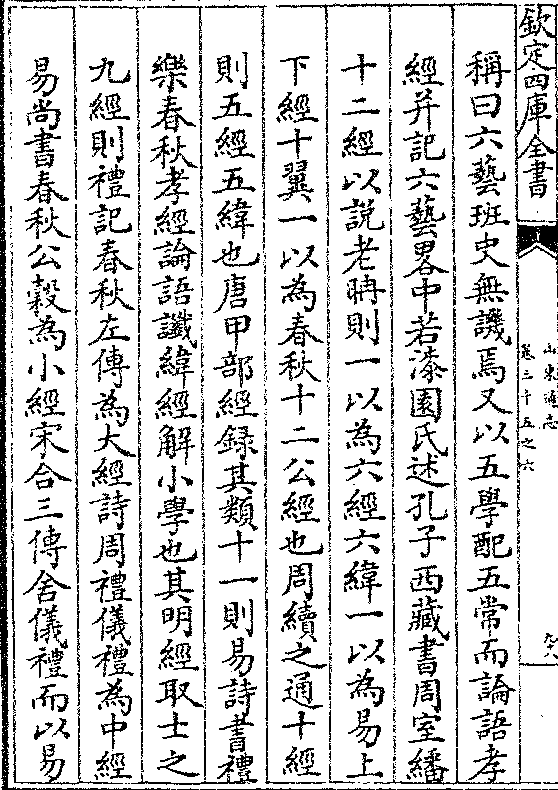 欽定四庫全書
山東通志
卷三十五之六
九八
稱曰六藝班史無譏焉又以五學配五常而論語孝
經并記六藝畧中若漆園氏述孔子西藏書周室繙
十二經以説老聃則一以為六經六緯一以為易上
下經十翼一以為春秋十二公經也周續之通十經
則五經五緯也唐甲部經録其類十一則易詩書禮
樂春秋孝經論語讖緯經解小學也其明經取士之
九經則禮記春秋左傳為大經詩周禮儀禮為中經
易尚書春秋公穀為小經宋合三傳舍儀禮而以易